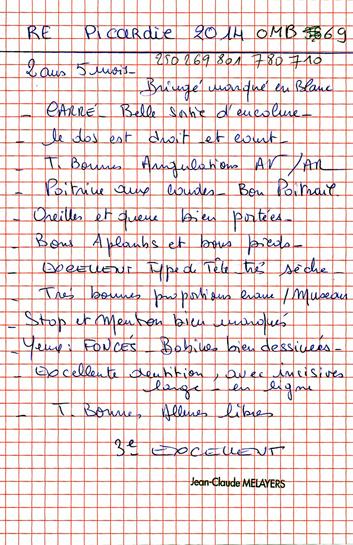 RE Picardie 2014 OMB 69
250 269 801 780 710
2 ans 5 mois -
Bringé marqué en Blanc
- CARRÉ - Belle sortie d'encolure -
- le dos est droit et court -
- T. Bonnes Angulations AV/AR
- Poitrine aux coudes - Bon Poitrail.
- Oreilles et queue bien portées -
- Bons Aplombs et bons pieds -
- EXCELLENT Type de Tête - très sèche -
- Très bonnes proportions crane/Museau
- Stop et Menton bien marqués
- Yeux : FONCÉS - Babines bien dessinées -
- Excellente dentition, avec incisives
large - en ligne
- T. Bonnes Allures libres
3e EXCELLENT
Jean-Claude MELAYERS